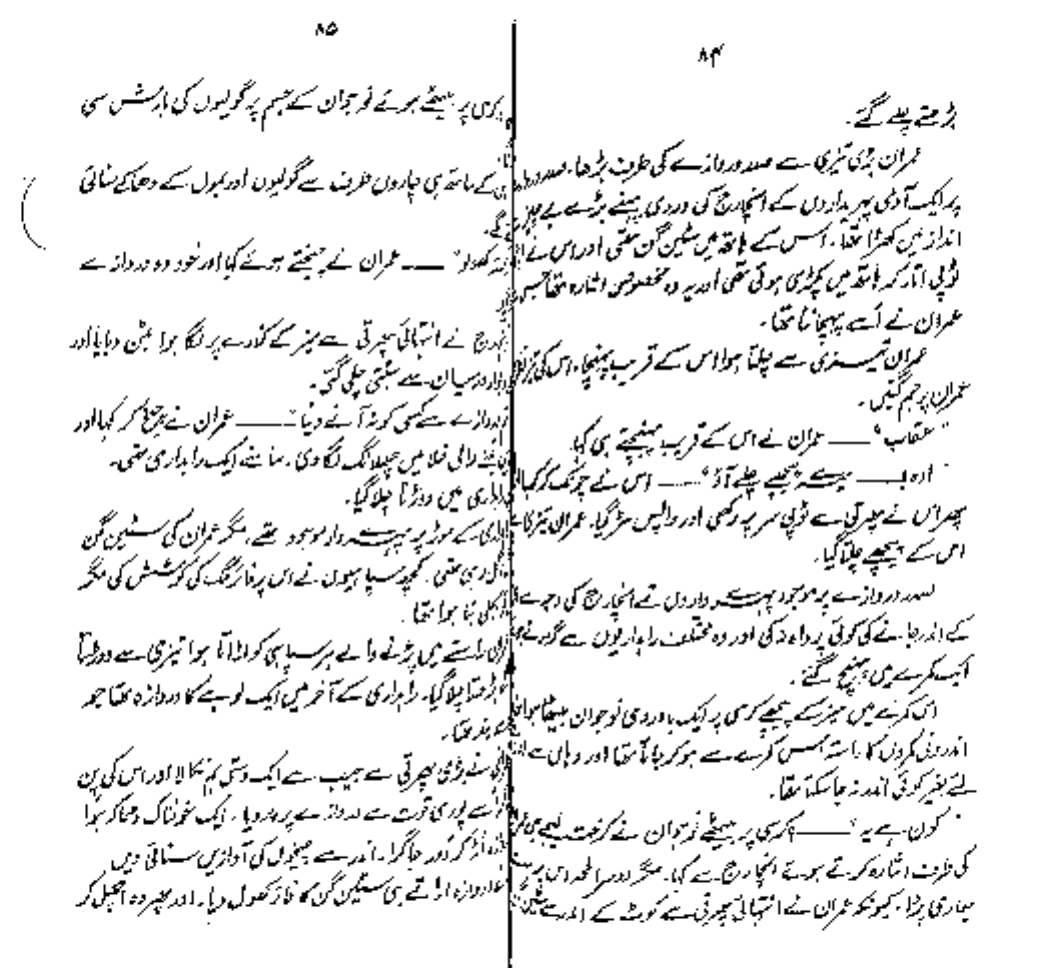 ۸۴
بڑھتے چلے گئے۔
عمران بڑی تیزی سے صدر دروازے کی طرف بڑھا۔
پر ایک آدمی پہریداروں کے انچارج کی وردی پہنے بڑے بے چین
انداز میں کھڑا تھا۔ اس کے ہاتھ میں سٹین گن تھی اور اس نے
ٹوپی اتار کر ہاتھ میں پکڑی ہوئی تھی اور یہ وہ مخصوص اشارہ تھا جس
عمران نے اُسے پہچاننا تھا۔
عمران تیزی سے چلتا ہوا اس کے قریب پہنچا۔ اس کی
عمران پر جم گئیں۔
"عقاب" ــــ عمران نے اس کے قریب پہنچتے ہی کہا۔
اوہ ــــ میرے پیچھے چلے آؤ" ــــ اس نے چونک کر کہا
پھر اس نے پھرتی سے ٹوپی سر پر رکھی اور واپس مڑ گیا۔ عمران
اس کے پیچھے چلتا گیا۔
صدر دروازے پر موجود پہرے داروں نے انچارج کی وجہ سے
کے اندر جانے کی کوئی پرواہ نہ کی اور وہ مختلف راہداریوں سے گزرتے
ایک کمرے میں پہنچ گئے۔
اس کمرے میں میز کے پیچھے کرسی پر ایک باوردی نوجوان بیٹھا ہوا
اندرونی کمروں کا راستہ اس کمرے سے ہو کر جاتا تھا اور وہاں سے
لئے بغیر کوئی اندر نہ جا سکتا تھا۔
"کون ہے یہ" ــــ کرسی پر بیٹھے نوجوان نے کرخت لہجے میں
کی طرف اشارہ کرتے ہوئے انچارج سے کہا۔ مگر دوسرا لمحہ اس پر
بھاری پڑا۔ کیونکہ عمران نے انتہائی پھرتی سے کوٹ کے اندر سے
۸۵
کرسی پر بیٹھے ہوئے نوجوان کے جسم پر گولیوں کی بارش سی
کے ساتھ ہی چاروں طرف سے گولیوں اور بموں کے دھماکے سنائی
گے۔
کھولو" ــــ عمران نے چیختے ہوئے کہا اور خود وہ دروازے
انچارج نے انتہائی پھرتی سے میز کے کنارے پر لگا ہوا بٹن دبایا اور
درمیان سے ہٹتی چلی گئی۔
دروازے سے کسی کو نہ آنے دینا" ــــ عمران نے چیخ کر کہا اور
والی خلا میں چھلانگ لگا دی۔ سامنے ایک راہداری تھی۔
راہداری میں دوڑتا چلا گیا۔
کے موڑ پر پہرے دار موجود تھے۔ مگر عمران کی سٹین گن
رہی تھی۔ کچھ سپاہیوں نے اس پر فائرنگ کی کوشش کی مگر
بجلی بنا ہوا تھا۔
راستے میں پڑنے والے ہر سپاہی کو اڑاتا ہوا تیزی سے دوڑتا
بڑھتا چلا گیا۔ راہداری کے آخر میں ایک لوہے کا دروازہ تھا جو
بند تھا۔
نے بڑی پھرتی سے جیب سے ایک دستی بم نکالا اور اس کی پن
اسے پوری قوت سے دروازے پر دے دیا۔ ایک خوفناک دھماکہ ہوا
اڑ کر دور جا گرا۔ اندر سے چیخوں کی آوازیں سنائی دیں
دروازہ اڑتے ہی سٹین گن کا فائر کھول دیا۔ اور پھر وہ اچھل کر